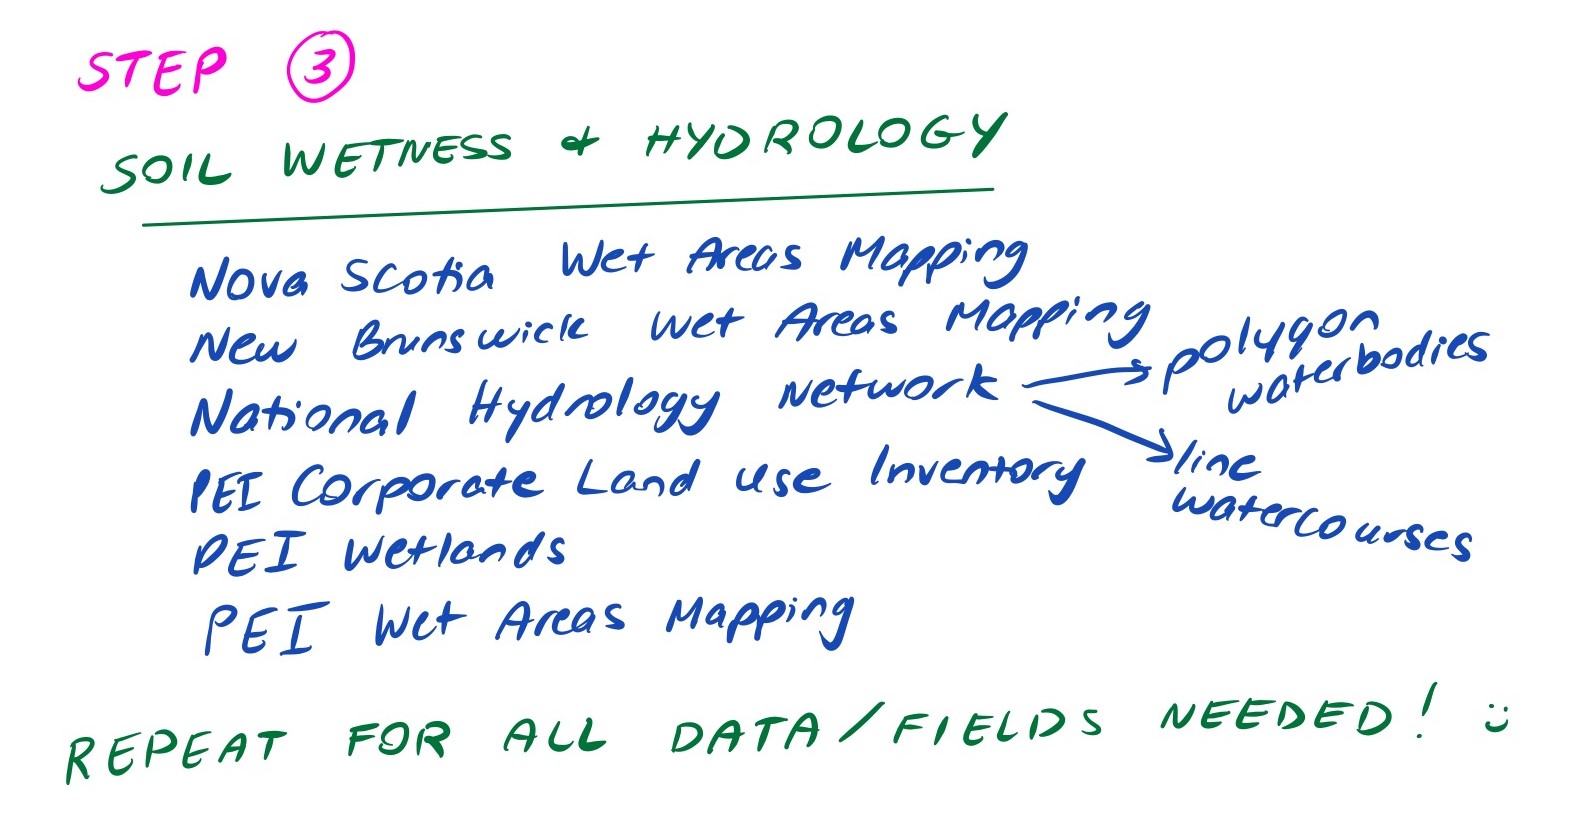 STEP 3
SOIL WETNESS & HYDROLOGY
Nova Scotia Wet Areas Mapping
New Brunswick Wet Areas Mapping
National Hydrology Network
polygon
waterbodies
line
watercourses
PEI Corporate Land Use Inventory
PEI Wetlands
PEI Wet Areas Mapping
REPEAT FOR ALL DATA/FIELDS NEEDED! :)